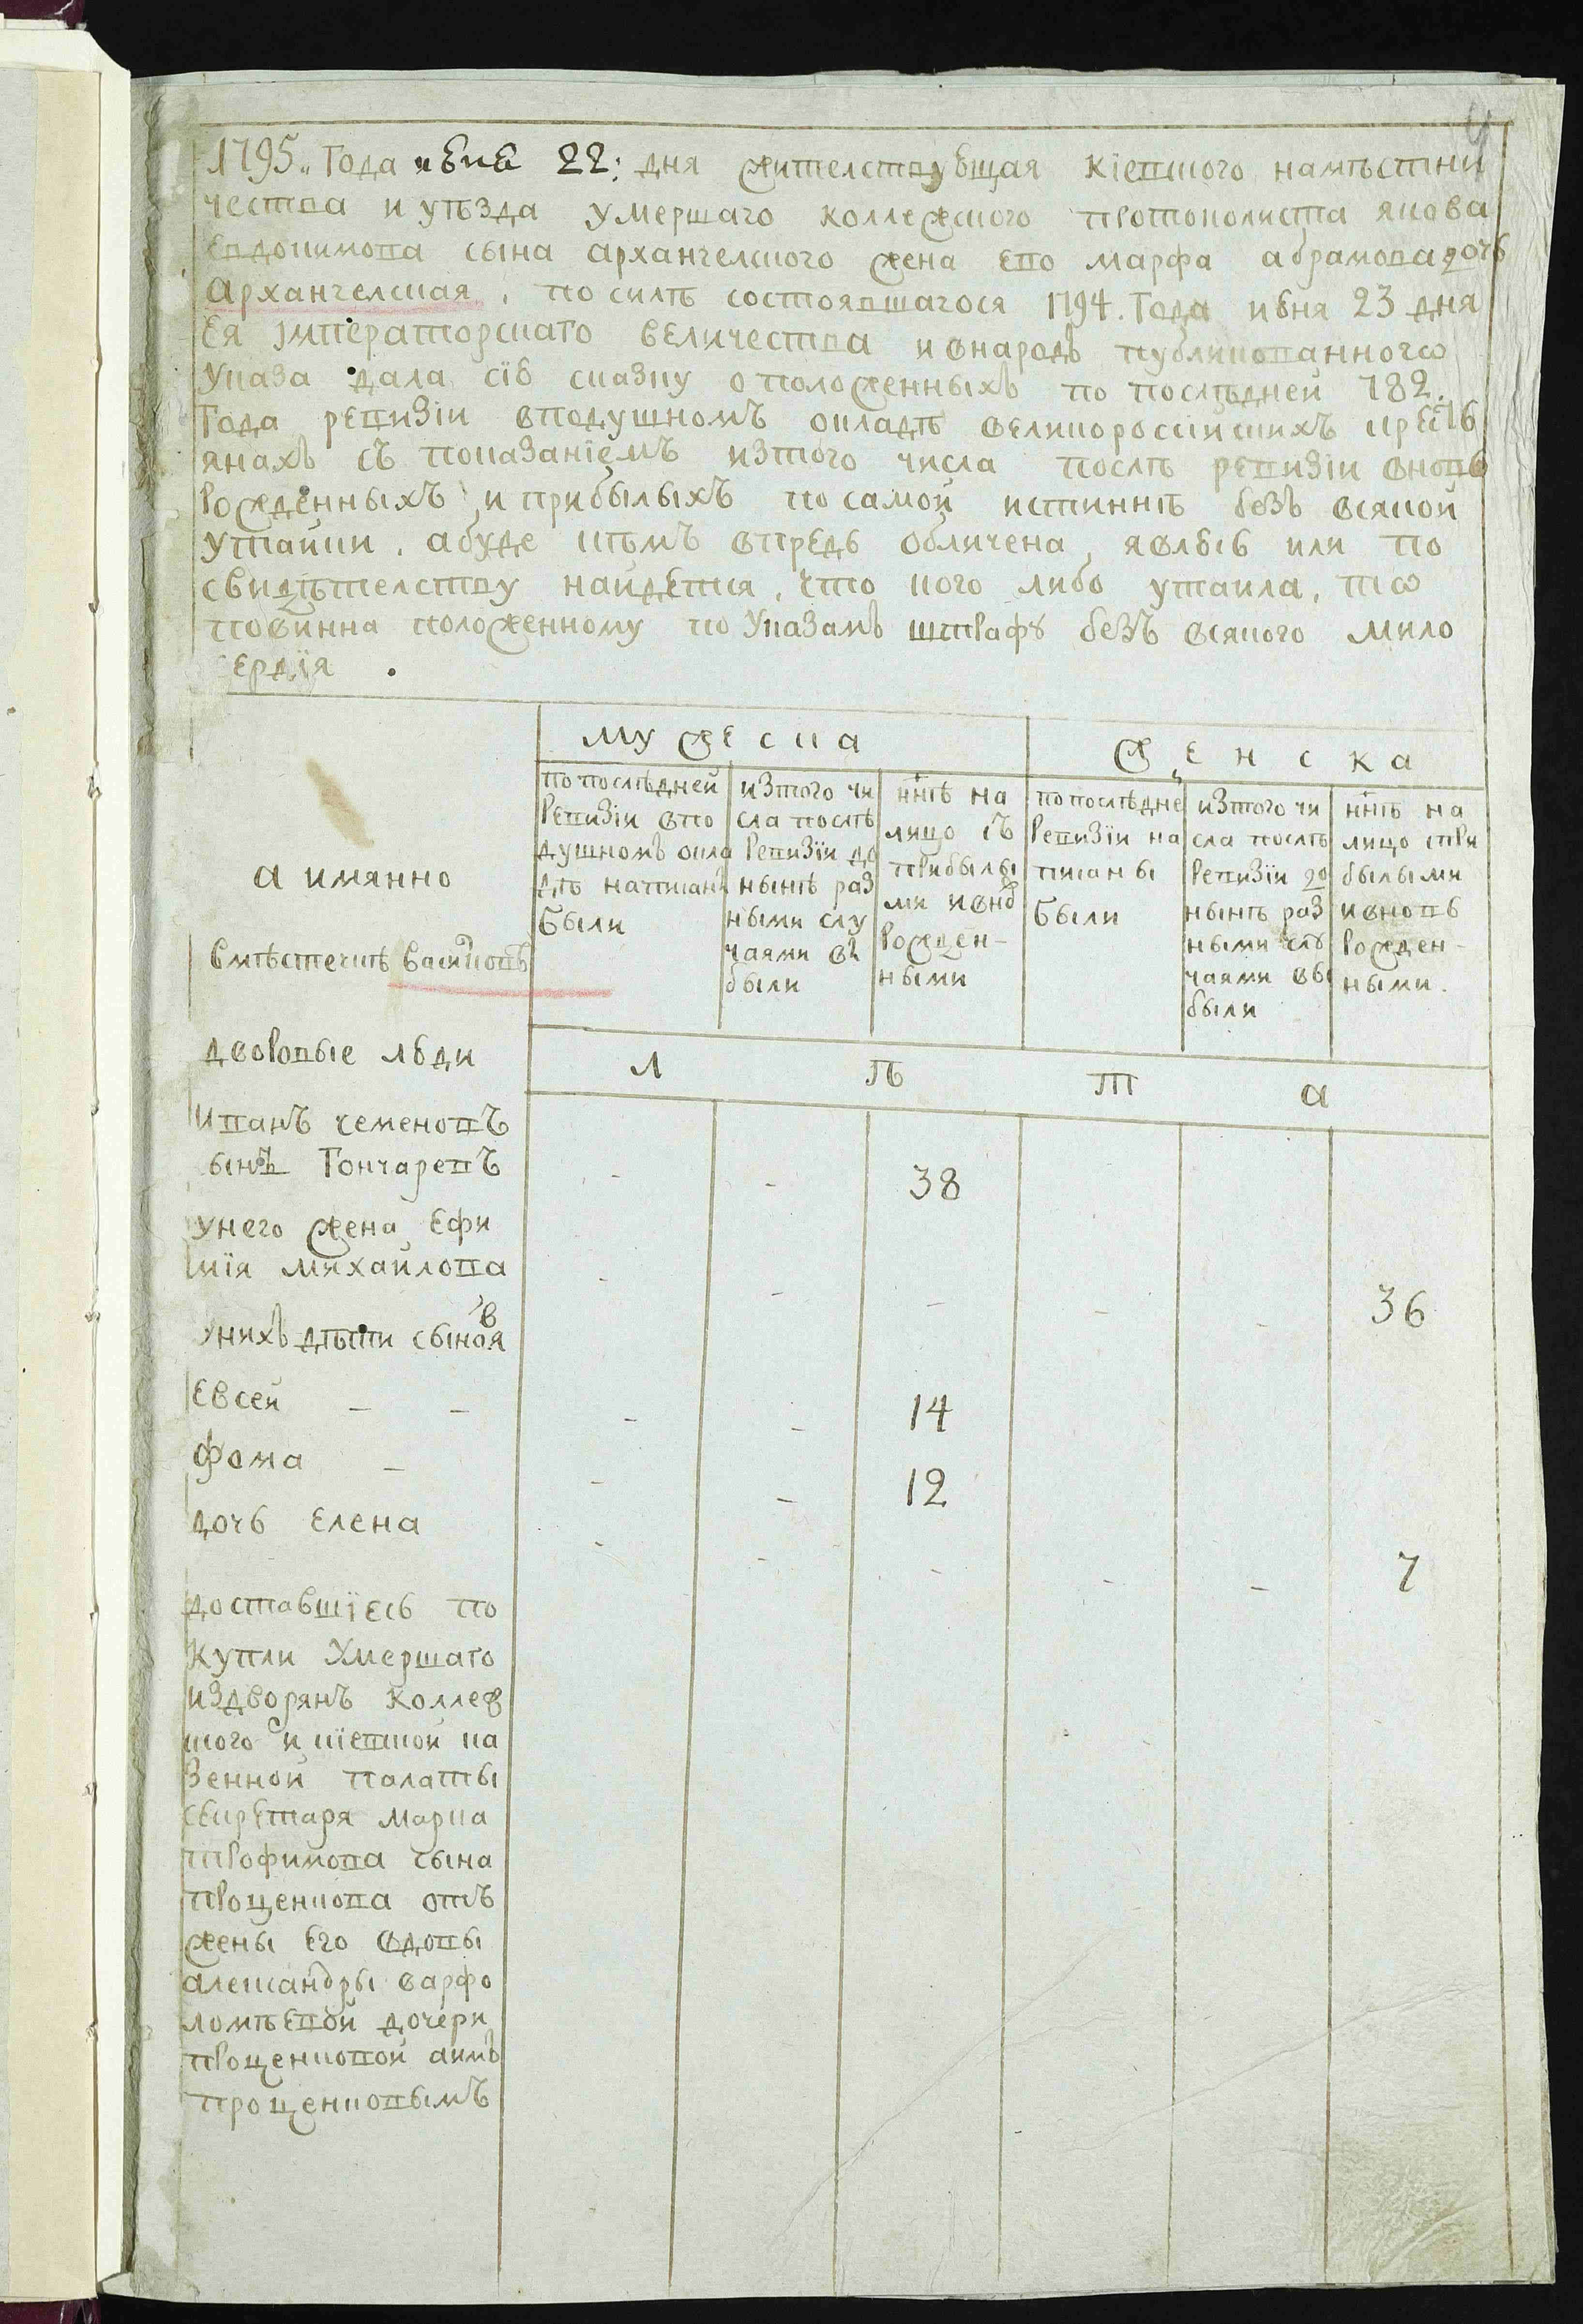 1795„ Года июня 22: дня жителствующая Кіевского намѣстни
чества и уѣзда умершаго коллежского протоколиста якова
Евдокимова сына архангелского жена его марфа абрамова дочь
архангелская, по силѣ состоявшагося 1794. Года июня 23 дня
Ея імператорскаго величества и внародъ публикованного
Указа дала сію сказку о положенныхъ по последней 782.
Года ревизіи вподушномъ окладѣ великороссійскихъ кресть
янахъ съ показаніемъ изтого числа послѣ ревизіи вновь
рожденныхъ и прибылыхъ по самой истиннѣ безъ всякой
утайки. абуде кѣмъ впредь обличена явлюсь или по
свидѣтелству найдется, что кого либо утаила, то
повинна положенному по Указамъ штрафу безъ всякого мило
сердїя .
мужеска
женска
а имянно
по послѣдней Ревизіи впо душномъ окла дѣ написаны были
изтого чи сла послѣ Ревизїи до нынѣ раз ными слу чаями вы были
ннѣ на лицо съ прибылы ми ивно рожден- ными
по послѣдне Ревизїи на писаны были
изтого чи сла послѣ Ревизїи до нынѣ раз ными слу чаями вы были
ннѣ на лицо спри былыми ивновь рожден- ными.
вмѣстечкѣ василковѣ
дворовые люди
Л ѣ т а
Иванъ семеновъ
сынъ Гончаревъ - - 38
унего жена Ефи
мїя михайлова - - - - - 36
унихъ дѣти сыновя
Евсей - - - - 14
Фома - - - 12
дочь Елена - - - - - 7
доставшїесь по
купли Умершаго
издворянъ Коллеж
ского и кїевской ка
зенной палаты
секретаря марка
трофимова сына
прощенкова отъ
жены его вдовы
александры варфо
ломѣевой дочери
прощенковой аимъ
прощенковымъ